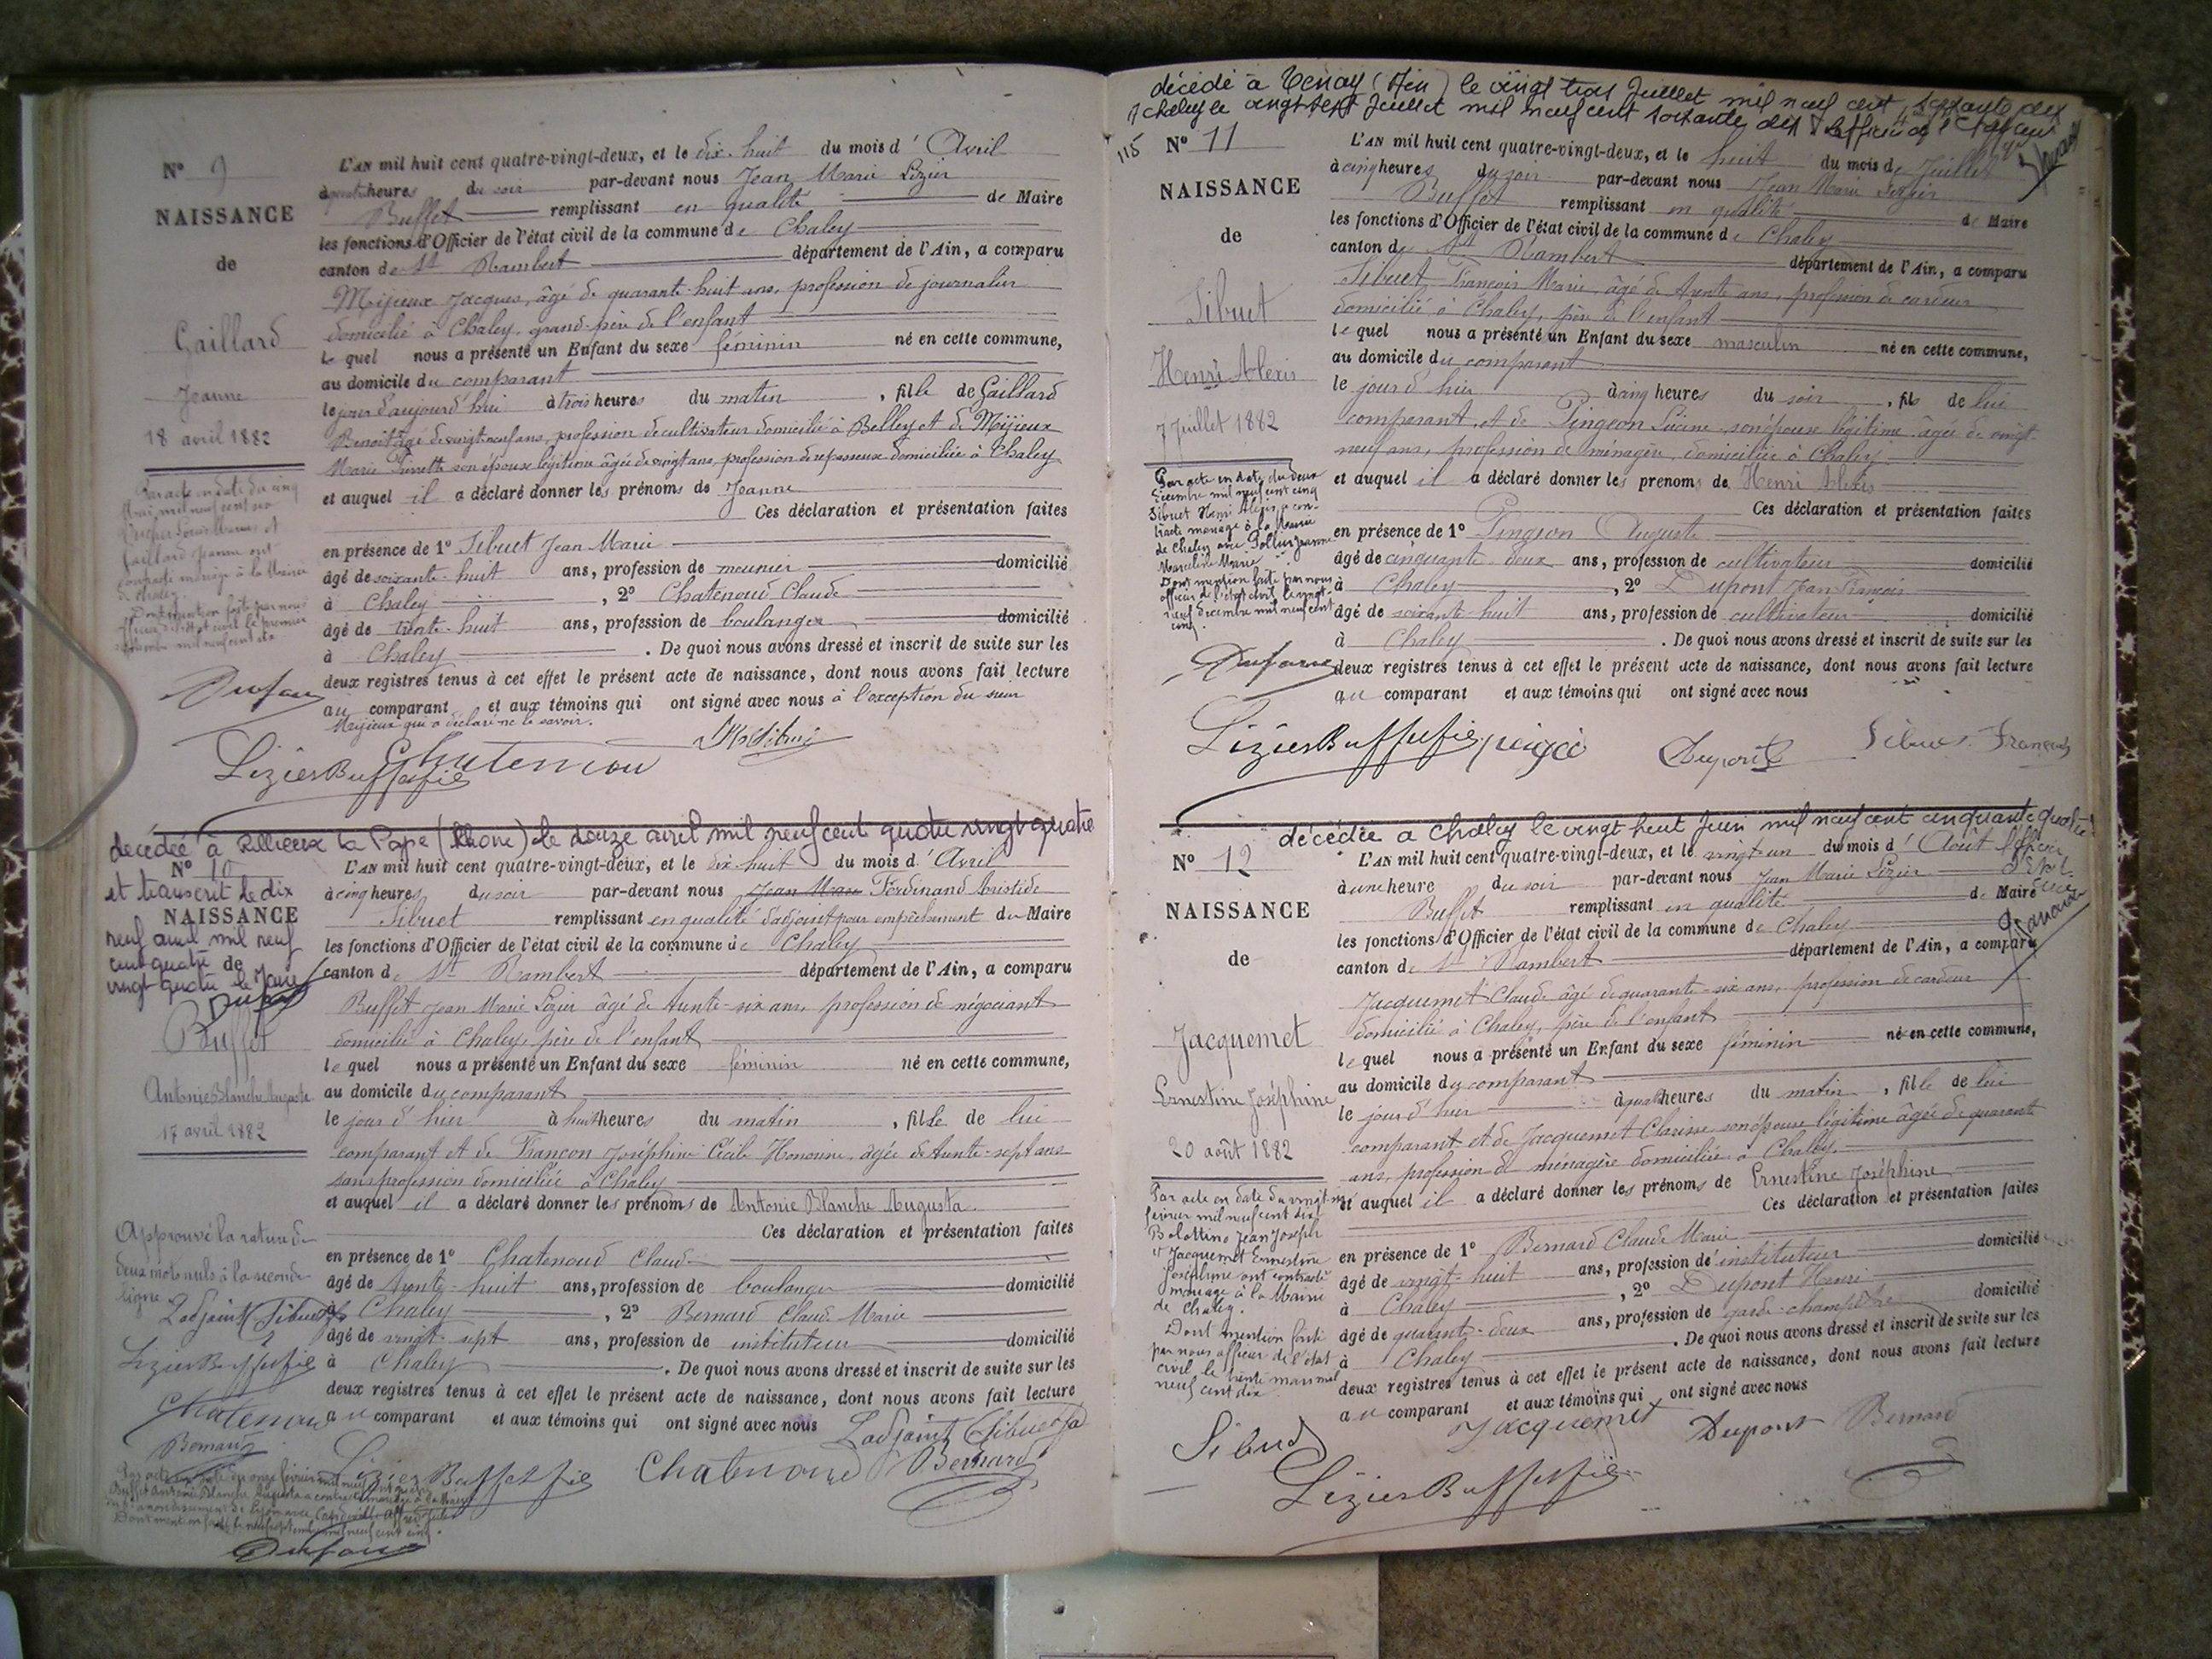 N° 9
NAISSANCE
de
Gaillard
Jeanne
18 avril 1882
L'AN mil huit cent quatre-vingt-deux, et le dix-huit du mois d'Avril
à heures du soir par-devant nous Jean Marie Lizier
Buffet remplissant en qualité de Maire
les fonctions d'Officier de l'état civil de la commune de Chaley
canton de St Rambert département de l'Ain, a comparu
Mijieux Jacques, âgé de quarante-huit ans, profession de journalier
domicilié à Chaley, grand-père de l'enfant
lequel nous a présenté un Enfant du sexe féminin né en cette commune,
au domicile du comparant
le jour d'aujourd'hui à trois heures du matin, fille de Gaillard
Benoit âgé de vingt-neuf ans, profession de cultivateur domicilié à Belley et de Mijieux
Marie son épouse légitime âgée de vingt ans, profession de repasseuse domiciliée à Chaley
et auquel il a déclaré donner les prénoms de Jeanne
Ces déclaration et présentation faites
en présence de 1° Sibuet Jean Marie
âgé de soixante-huit ans, profession de meunier domicilié
à Chaley, 2° Chatenoud Claude
âgé de trente-huit ans, profession de boulanger domicilié
à Chaley. De quoi nous avons dressé et inscrit de suite sur les
deux registres tenus à cet effet le présent acte de naissance, dont nous avons fait lecture
au comparant et aux témoins qui ont signé avec nous à l'exception du sieur
Mijieux qui a déclaré ne le savoir.
Par acte en date du cinq
Mai mil neuf cent six
Gaillard Jeanne ont
contracté mariage à la Mairie
de Chaley.
Dont mention faite par nous
officier de l'état civil le premier
mil neuf cent six
Dufour
LizierBuffetfils
décédée à Rillieux la Pape (Rhône) le douze avril mil neuf cent quatre vingt quatre
N° 10
et transcrit le dix
NAISSANCE
neuf avril mil neuf
cent quatre de
vingt quatre le Maire
Buffet
Antonie Blanche Augusta
17 avril 1882
L'AN mil huit cent quatre-vingt-deux, et le dix-huit du mois d'Avril
à cinq heures du soir par-devant nous Jean Marie Ferdinand Aristide
Sibuet remplissant en qualité d'adjoint pour empêchement du Maire
les fonctions d'Officier de l'état civil de la commune de Chaley
canton de St Rambert département de l'Ain, a comparu
Buffet Jean Marie Lizier âgé de trente-six ans, profession de négociant
domicilié à Chaley, père de l'enfant
lequel nous a présenté un Enfant du sexe féminin né en cette commune,
au domicile du comparant
le jour d'hier à huit heures du matin, fille de lui
comparant et de Françon Joséphine Cécile Honorine, agée de trente-sept ans
sans profession domiciliée à Chaley
et auquel il a déclaré donner les prénoms de Antonie Blanche Augusta
Ces déclaration et présentation faites
en présence de 1° Chatenoud Claude
âgé de trente-huit ans, profession de boulanger domicilié
à Chaley, 2° Bernard Claude Marie
âgé de vingt-sept ans, profession de instituteur domicilié
à Chaley. De quoi nous avons dressé et inscrit de suite sur les
deux registres tenus à cet effet le présent acte de naissance, dont nous avons fait lecture
au comparant et aux témoins qui ont signé avec nous
Approuvé la rature de
deux mots nuls à la seconde
ligne
L'adjoint Sibuet
LizierBuffetfils
Chatenoud
Bernard
L'adjoint Sibuet
Lizier Buffet fils Chatenoud Bernard
Par acte en date du onze février mil neuf cent
Buffet Antonie Blanche Augusta a contracté mariage à la Mairie
du arrondissement de Lyon avec
Dont mention faite le neuf septembre mil neuf cent cinq.
Dufour
décédé à Tenay (Ain) le vingt trois Juillet mil neuf cent soixante dix
Chaley le vingt sept Juillet mil neuf cent soixante dix L'officier de l'Etat civil
115
N° 11
NAISSANCE
de
Sibuet
Henri Alexis
7 Juillet 1882
L'AN mil huit cent quatre-vingt-deux, et le huit du mois de Juillet
à cinq heures du soir par-devant nous Jean Marie Lizier
Buffet remplissant en qualité de Maire
les fonctions d'Officier de l'état civil de la commune de Chaley
canton de St Rambert département de l'Ain, a comparu
Sibuet François Marie, âgé de trente ans, profession de cardeur
domicilié à Chaley, père de l'enfant
lequel nous a présenté un Enfant du sexe masculin né en cette commune,
au domicile du comparant
le jour d'hier à cinq heures du soir, fils de lui
comparant, et de Pingeon son épouse légitime, âgée de vingt-
neuf ans, profession de ménagère, domiciliée à Chaley
et auquel il a déclaré donner les prenoms de Henri Alexis
Ces déclaration et présentation faites
en présence de 1° Pingeon Auguste
âgé de cinquante-deux ans, profession de cultivateur domicilié
à Chaley, 2° Dupont Jean François
âgé de soixante-huit ans, profession de cultivateur domicilié
à Chaley. De quoi nous avons dressé et inscrit de suite sur les
deux registres tenus à cet effet le présent acte de naissance, dont nous avons fait lecture
au comparant et aux témoins qui ont signé avec nous
Par acte en date du deux
Décembre mil neuf cent cinq
Sibuet Henri Alexis a con-
tracté mariage à la Mairie
de Chaley avec Jeanne
Marceline Marie.
Dont mention faite par nous
officier de l'état civil le vingt-
neuf décembre mil neuf cent
cinq.
Dufour
LizierBuffetfils Dupont Sibuet François
décédée à Chaley le vingt huit Juin mil neuf cent cinquante quatre
L'officier
d'Etat
N° 12
NAISSANCE
de
Jacquemet
Ernestine Joséphine
20 août 1882
L'AN mil huit cent quatre-vingt-deux, et le vingt-un du mois d'Août
à une heure du soir par-devant nous Jean Marie Lizier
Buffet remplissant en qualité de Maire
les fonctions d'Officier de l'état civil de la commune de Chaley
canton de St Rambert département de l'Ain, a comparu
Jacquemet Claude âgé de quarante-six ans, profession de cardeur
domicilié à Chaley, père de l'enfant
lequel nous a présenté un Enfant du sexe féminin né en cette commune,
au domicile du comparant
le jour d'hier à quatre heures du matin, fille de lui
comparant et de Jacquemet Clarisse son épouse légitime âgée de quarante
ans, profession de ménagère domiciliée à Chaley.
et auquel il a déclaré donner les prénoms de Ernestine Joséphine
Ces déclaration et présentation faites
en présence de 1° Bernard Claude Marie domicilié
âgé de vingt-huit ans, profession de instituteur
à Chaley, 2° Dupont Henri
âgé de quarante-deux ans, profession de garde-champêtre domicilié
à Chaley. De quoi nous avons dressé et inscrit de suite sur les
deux registres tenus à cet effet le présent acte de naissance, dont nous avons fait lecture
au comparant et aux témoins qui ont signé avec nous
Par acte en date du vingt
février mil neuf cent dix
Jean Joseph
et Jacquemet Ernestine
Joséphine ont contracté
mariage à la Mairie
de Chaley.
Dont mention faite
par nous officier de l'état
civil le trente mars mil
neuf cent dix
Sibuet
Jacquemet Dupont Bernard
LizierBuffetfils